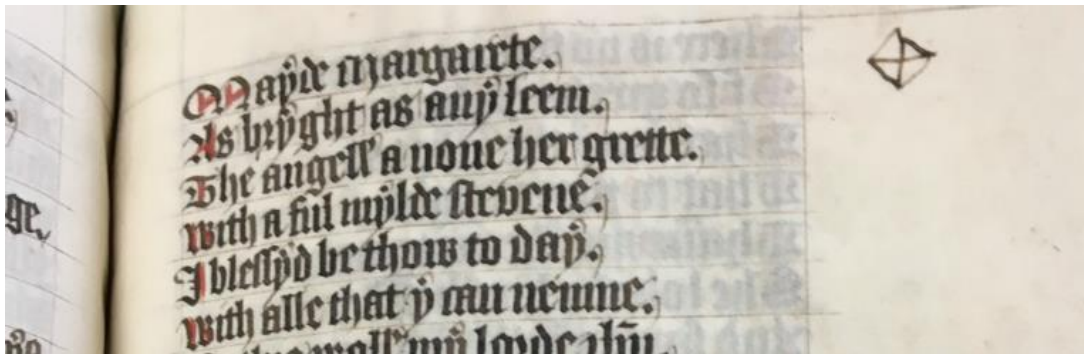 Mayde Margarete.
As bryght as any leem.
The angell a none her grette.
With a ful mylde stevene.
I blessyd be thow to day.
With alle that y can nemne.
my lorde ihu
ge